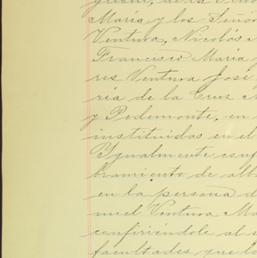 María y los Señor
Ventura, Nicolás
Francisco María
res Ventura José
ría de la Cruz M
y Pedemonte, en
instituidos en el
Igualmente conf
bramiento de alb
en la persona d
uel Ventura Ma
confiriéndole al
facultades que l